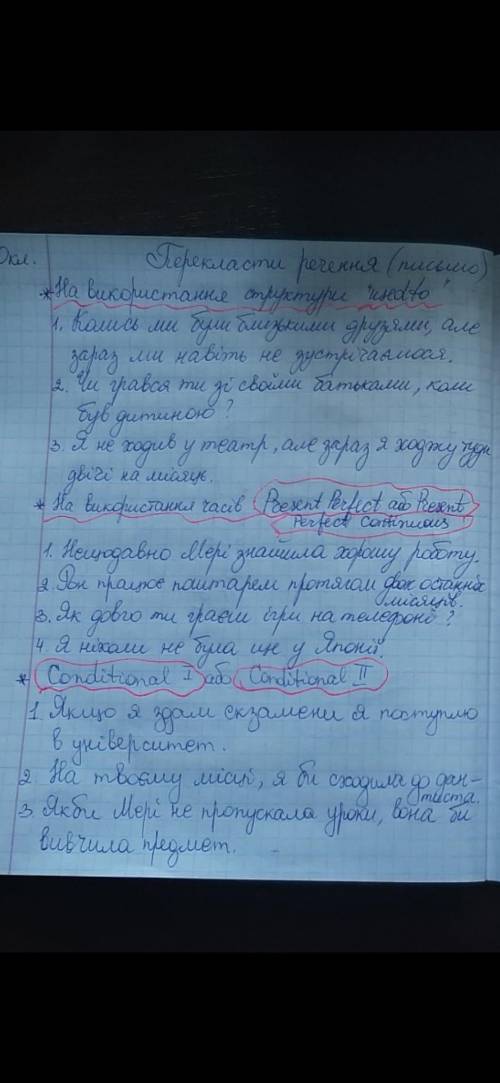 Перекласти речення (письмо)
* На використання структури "used to"
1. Колись ми були близькими друзями, але
зараз ми навіть не зустрічаємося.
2. Чи грався ти зі своїми батьками, коли
був дитиною?
3. Я не ходив у театр, але зараз я ходжу туди
двічі на місяць.
* На використання часів Present Perfect або Present
Perfect Continuous
1. Нещодавно Мері знайшла хорошу роботу.
2. Рон працює поштарем протягом двох останніх
місяців.
3. Як довго ти граєш ігри на телефоні?
4. Я ніколи не була ще у Японії.
* Conditional I або Conditional II
1. Якщо я здам екзамени я поступлю
в університет.
2. На твоєму місці, я би сходила до дан-
тиста.
3. Якби Мері не пропускала уроки, вона би
вивчила предмет.